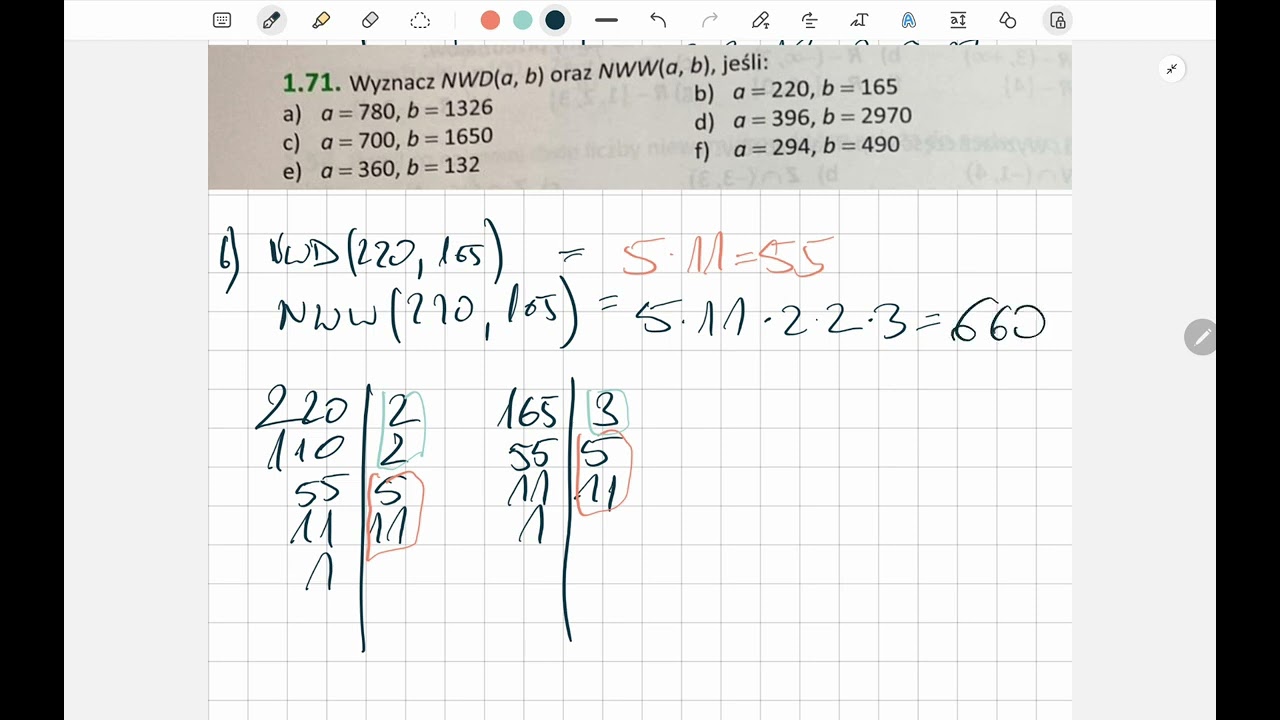 1.71. Wyznacz NWD(a, b) oraz NWW(a, b), jeśli:
a) a = 780, b = 1326
b) a = 220, b = 165
c) a = 700, b = 1650
d) a = 396, b = 2970
e) a = 360, b = 132
f) a = 294, b = 490
b) NWD(220, 165) = 5·11=55
NWW(220, 165) = 5·11·2·2·3=660
220 | 2 165 | 3
110 | 2 55 | 5
55 | 5 11 | 11
11 | 11 1 |
1 |